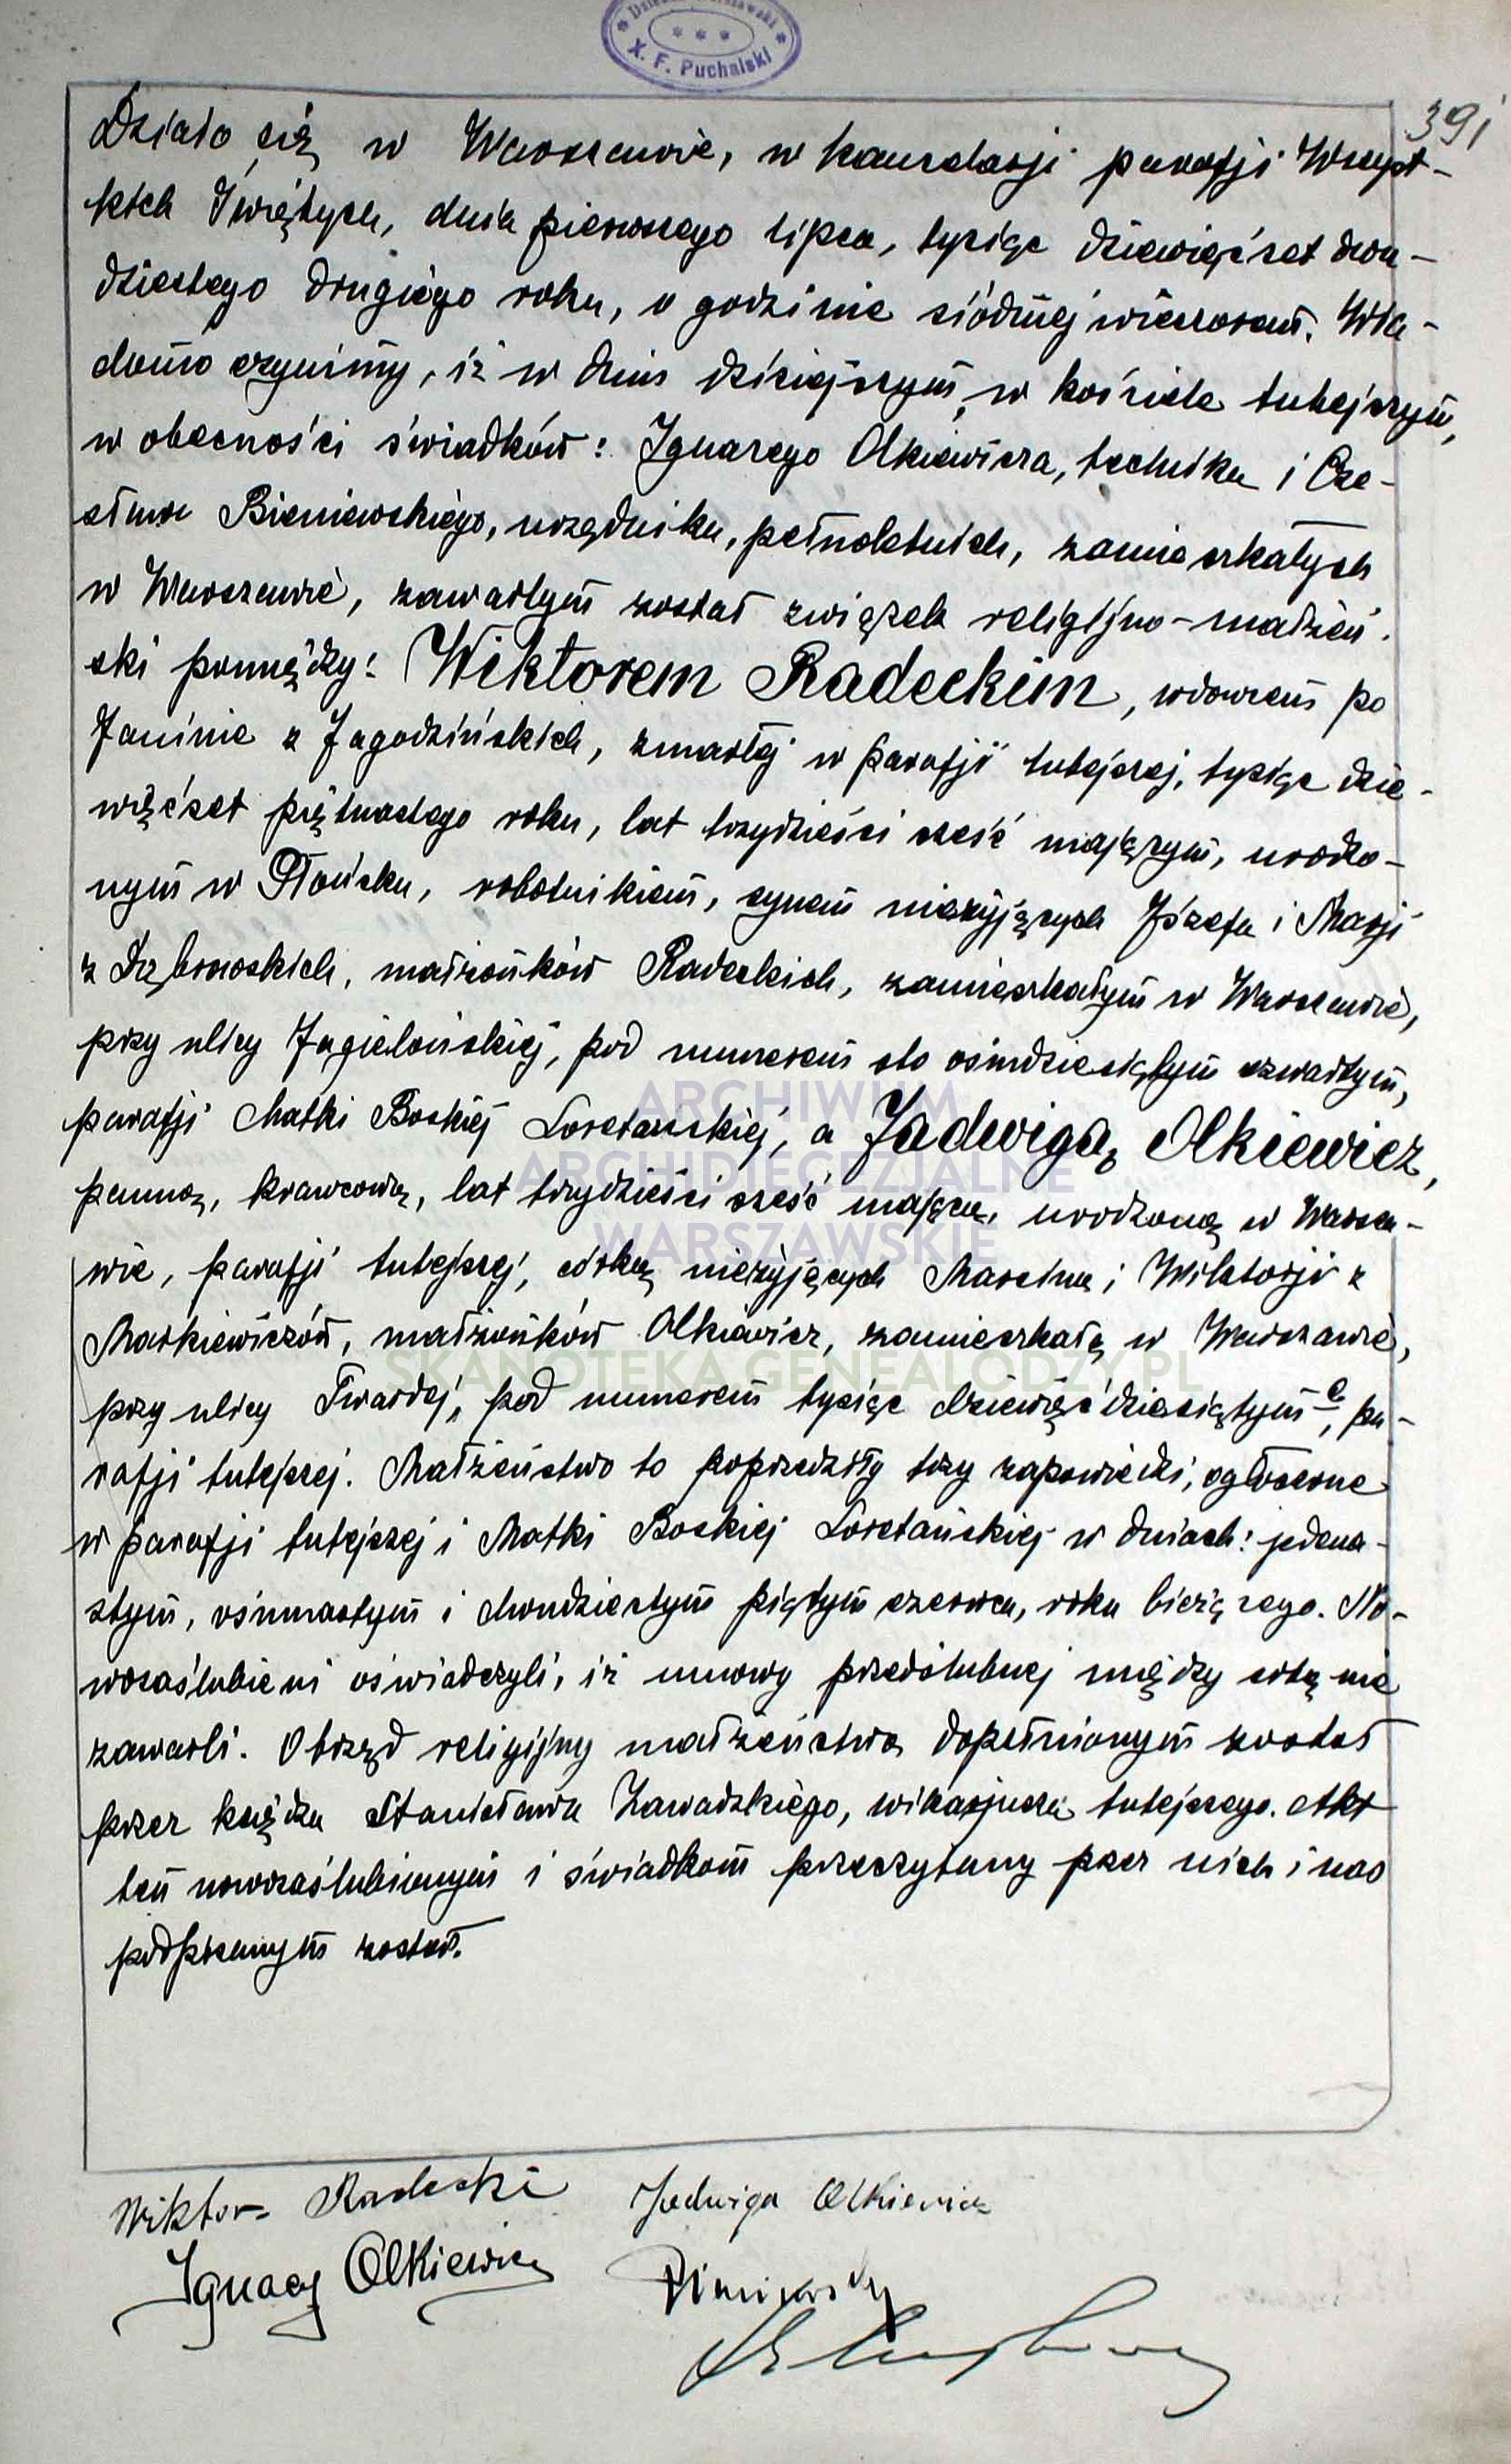 Dziekan Warszawski
X. F. Puchalski
391
Działo się w Warszawie, w kancelarji parafji Wszyst-
kich Świętych, dnia pierwszego lipca, tysiąc dziewięćset dwu-
dziestego drugiego roku, o godzinie siódmej wieczorem. Wia-
domo czynimy, iż w dniu dzisiejszym, w kościele tutejszym,
w obecności świadków: Ignacego Olkiewicza, technika i Cze-
sława Bieniewskiego, urzędnika, pełnoletnich, zamieszkałych
w Warszawie, zawartym został związek religijno-małżeń-
ski pomiędzy: Wiktorem Radeckim, wdowcem po
Janinie z Jagodzińskich, zmarłej w parafji tutejszej, tysiąc dzie-
więćset piętnastego roku, lat trzydzieści sześć mającym, urodzo-
nym w Płońsku, robotnikiem, synem nieżyjących Józefa i Marji
z Dąbrowskich, małżonków Radeckich, zamieszkałym w Warszawie,
przy ulicy Jagielońskiej, pod numerem sto ośmdziesiątym czwartym,
parafji Matki Boskiej Loretańskiej, a Jadwigą Olkiewicz,
panną, krawcową, lat trzydzieści sześć mającą, urodzoną w Warsza-
wie, parafji tutejszej, córką nieżyjących Marcina i Wiktorji z
Markiewiczów, małżonków Olkiewicz, zamieszkałą w Warszawie,
przy ulicy Twardej, pod numerem tysiąc dziewięćdziesiątym c, pa-
rafji tutejszej. Małżeństwo to poprzedziły trzy zapowiedzi, ogłoszone
w parafji tutejszej i Matki Boskiej Loretańskiej w dniach: jedena-
stym, ośmnastym i dwudziestym piątym czerwca, roku bieżącego. No-
wozaślubieni oświadczyli, iż umowy przedślubnej między sobą nie
zawarli. Obrzęd religijny małżeństwa dopełnionym został
przez księdza Stanisława Zawadzkiego, wikarjusza tutejszego. Akt
ten nowozaślubionym i świadkom przeczytany przez nich i nas
podpisanym został.
Wiktor Radecki Jadwiga Olkiewicz
Ignacy Olkiewicz
ARCHIWUM
ARCHIDIECEZJALNE
WARSZAWSKIE
SKANOTEKA.GENEALODZY.PL